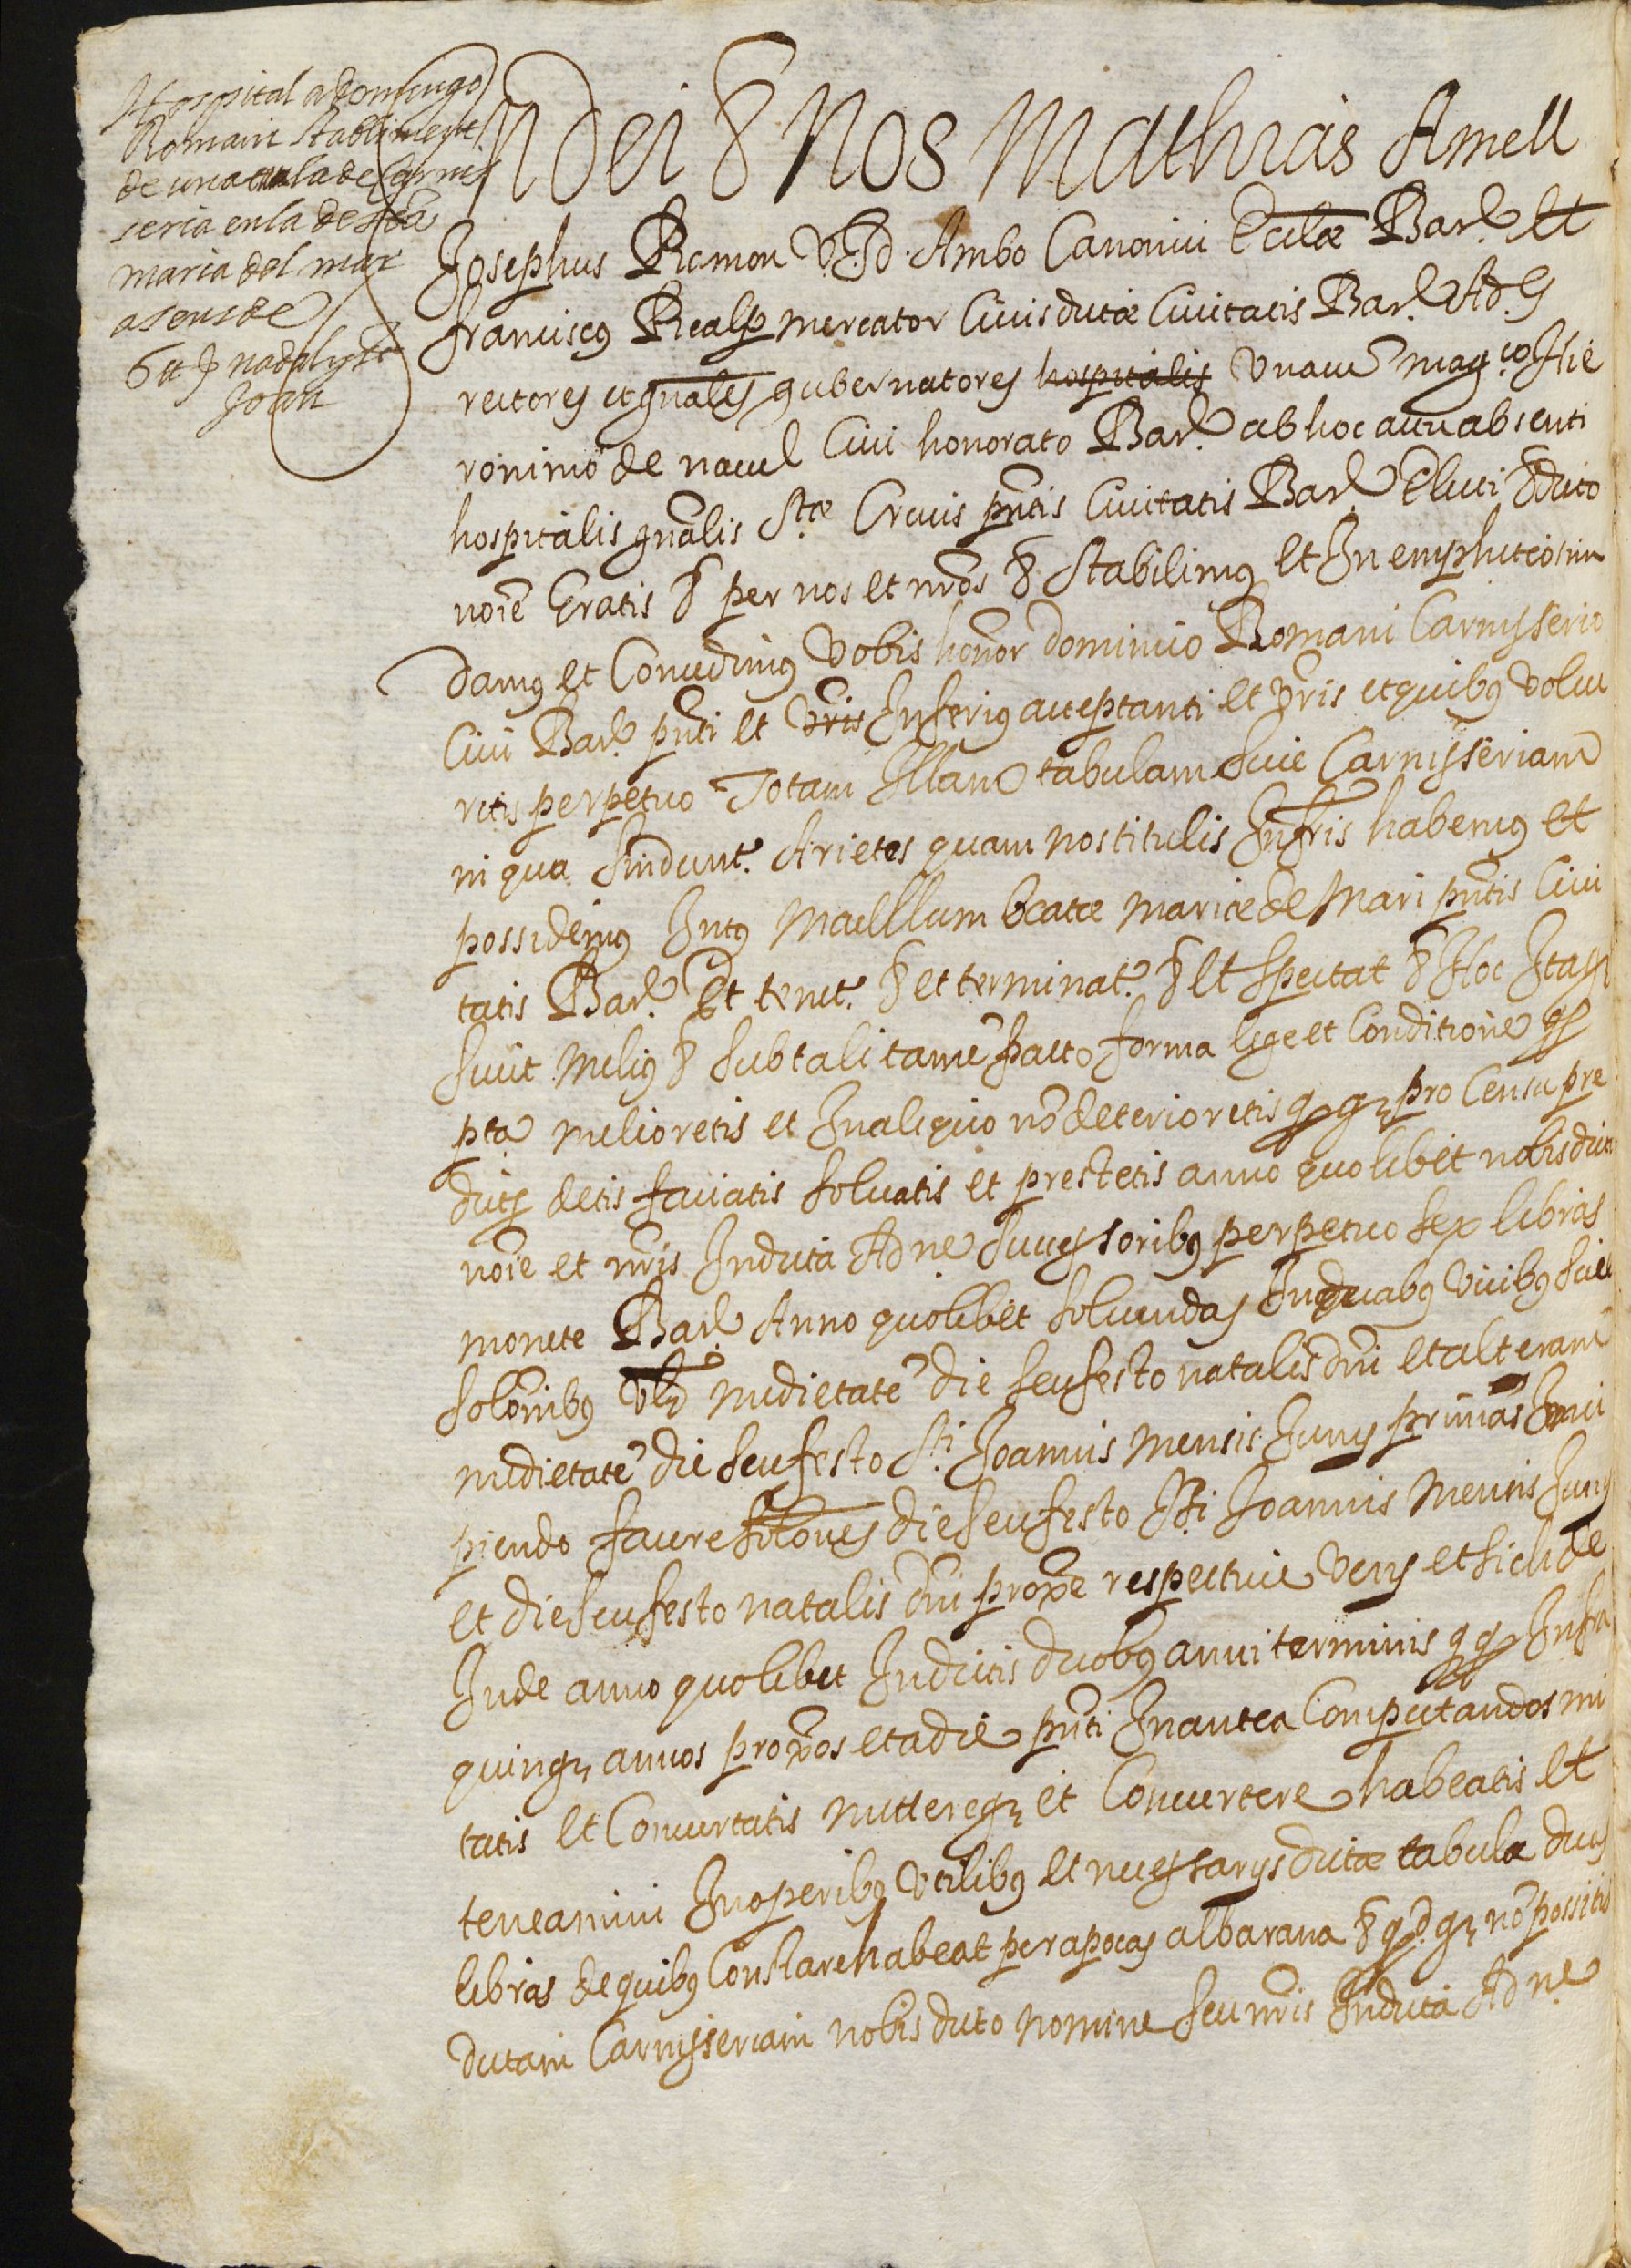 Hospital a domingo
Romani stabliment
de una taula de carnis
seria en la de sta
maria del mar
a sens de
6 ll p nadal y st
Joan
In Dei & Nos Mathias Amell
Josephus Ramon V.J.D. Ambo Canonici Ecclæ Barᵉ et
franciscus Realp mercator Civis dictæ Civitatis Barᵉ Ad. G
rectores et gñales gubernatores hospitalis una cũ magᶜᵒ Hie
ronimo de navel Civi honorato Barᵉ ab hoc actu absenti
hospitalis gñalis Stæ Crucis pñtis Civitatis Barᵉ Elect & dicto
noĩe Gratis & per nos et nr̃os & Stabilimus et In emphiteosim
damus et Concedimus vobis honor dominico Romani Carnisserio
Civi Barᵉ pñti et vr̃is Inferius acceptanti et vr̃is et quibus volue
ritis perpetuo Totam Illam tabulam sive Carnisseriam
in qua Sindunt Arietes quam nos titulis Infr̃is habemus et
possidemus Intus Macellum beatæ mariæ de Mari pñtis Civi
tatis Barᵉ Et tenet & et terminat & et spectat & Hoc Itaqꝫ
sicut melius & sub tali tamẽ pacto forma lege et Conditione qꝫ
pta melioretis et In aliquo nõ deterioretis qꝫ qꝫ pro Censu pre
dicts detis faciatis solvatis et prestetis anno quolibet nobis dicto
noĩe et nr̃is In dicta Adne successoribus perpetuo sex libras
monete Barᵉ Anno quolibet solvendas In duabus vicibus sive
solõnibus vlꝫ medietatẽ die seu festo natalis dñi et alteram
medietatẽ die seu festo Sti Joannis mensis Junii primas Inci
piendo facere solõnes die seu festo Sti Joannis mensis Junii
et die seu festo natalis dñi proxẽ respective venꝭ et sic inde
Inde anno quolibet In dictis duobus anni terminis qꝫ qꝫ Infra
quinqꝫ annos proxõs et a die pñti In antea Computandos mi
tatis et Convertatis mittereqꝫ et Convertere habeatis et
teneamini In operibus vtilibus et necessariis dictæ tabulæ duas
libras de quibus Constare habeat per apocas albarana & qd qꝫ nõ possitis
dictam Carnisseriam nobis dicto nomine seu nr̃is In dicta Adne